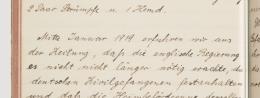 2 Paar Strümpfe u. 1 Hemd.
Mitte Januar 1919 erfuhren wir aus
der Zeitung, daß die englische Regierung
es nicht nicht länger nötig erachte, die
deutschen Zivilgefangenen festzuhalten
und daß die Heimbeförderung derselben